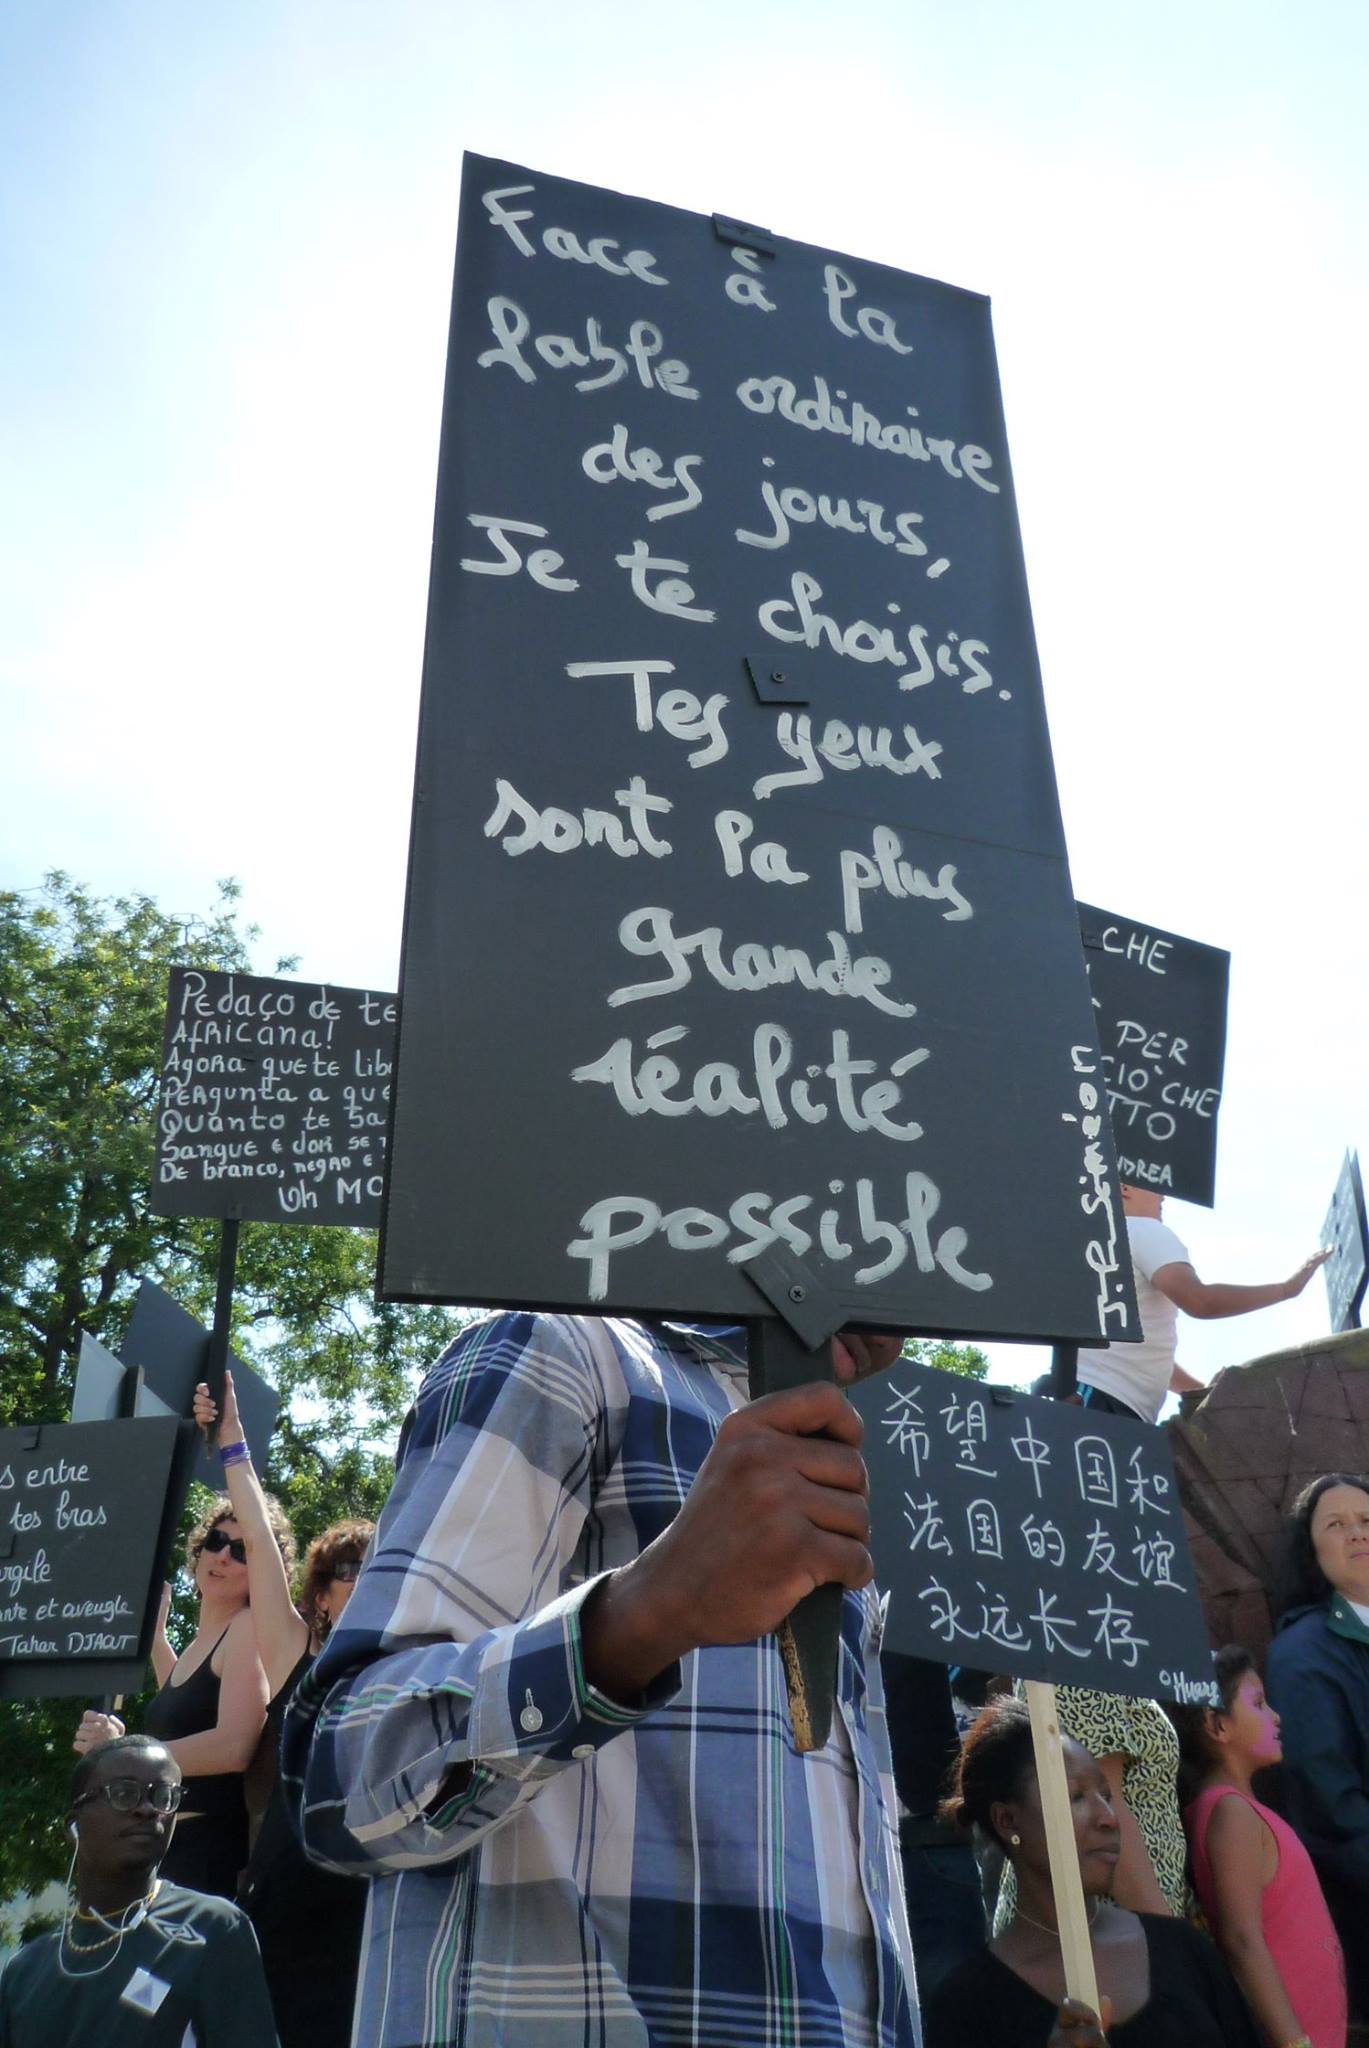 Face à la
fable ordinaire
des jours,
Je te choisis.
Tes yeux
sont la plus
grande
réalité
possible
J.P. Siméon
Pedaço de te
Africana!
Agora que te lib
Pergunta a que
Quanto te sa
Sangue e dor se
De branco, negro e
Uh MO
s entre
tes bras
rgile
nte et aveugle
Tahar DJAOUT
CHE
PER
CIÒ CHE
TTO
NDREA
希望中国和
法国的友谊
永远长存
Huang